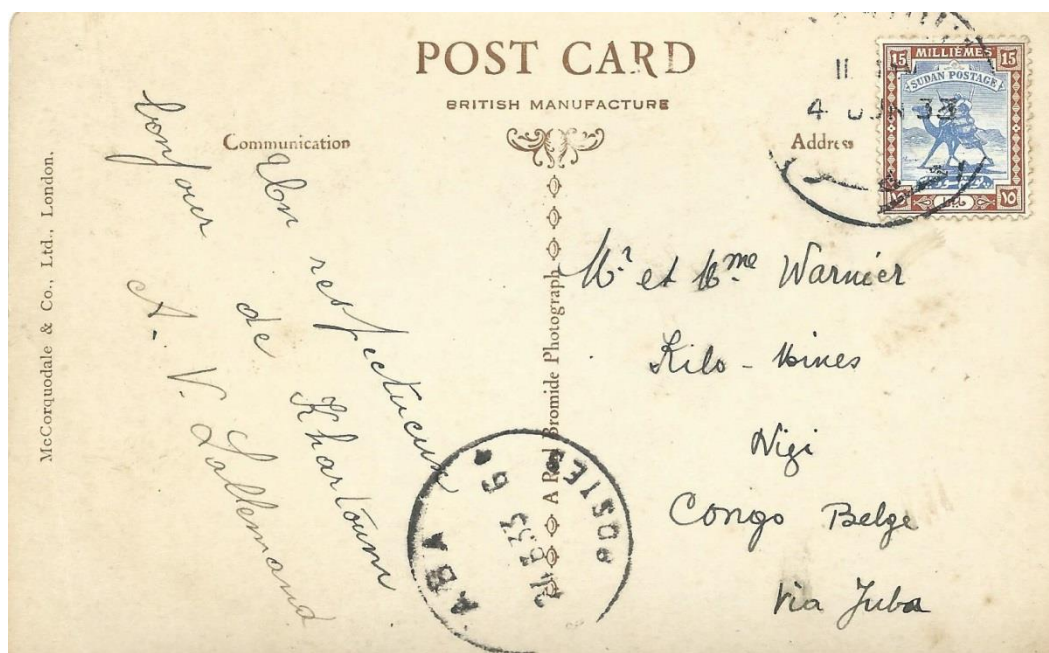 POST CARD
BRITISH MANUFACTURE
Communication
Address
McCorquodale & Co., Ltd., London.
A Real Bromide Photograph
Un respectueux
bonjour de Khartoum
A. V. Lallemand
Mr et Mme Warnier
Kilo - Mines
Nizi
Congo Belge
Via Juba
15 MILLIÈMES 15
SUDAN POSTAGE
١٥
4 JUN 33
ABA
POSTES